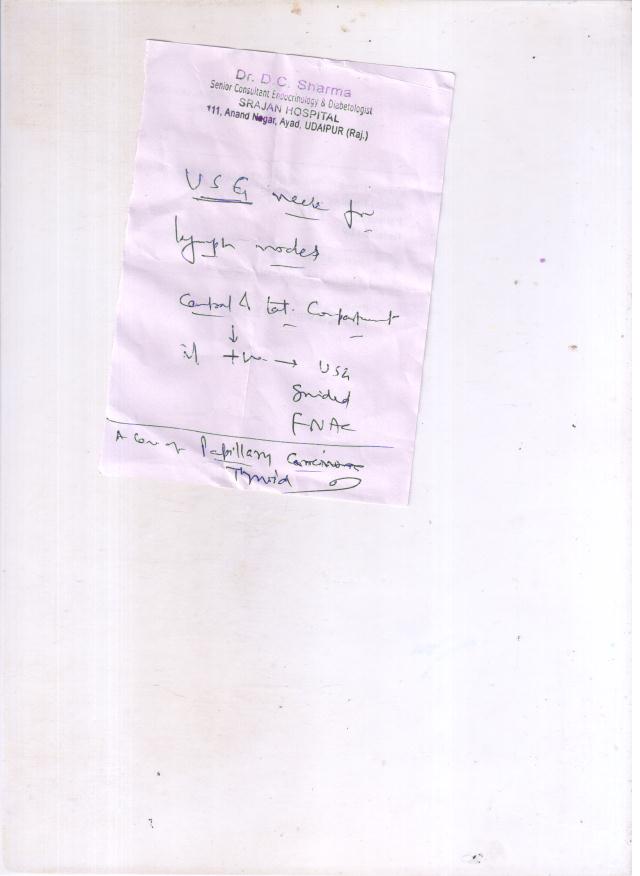 Dr. D.C. Sharma
Senior Consultant Endocrinology & Diabetologist
SRAJAN HOSPITAL
111, Anand Nagar, Ayad, UDAIPUR (Raj.)
USG neck for
lymph nodes
Central & Lat. Compartment
↓
if +ve → USG
guided
FNAC
A Case of Papillary Carcinoma
Thyroid